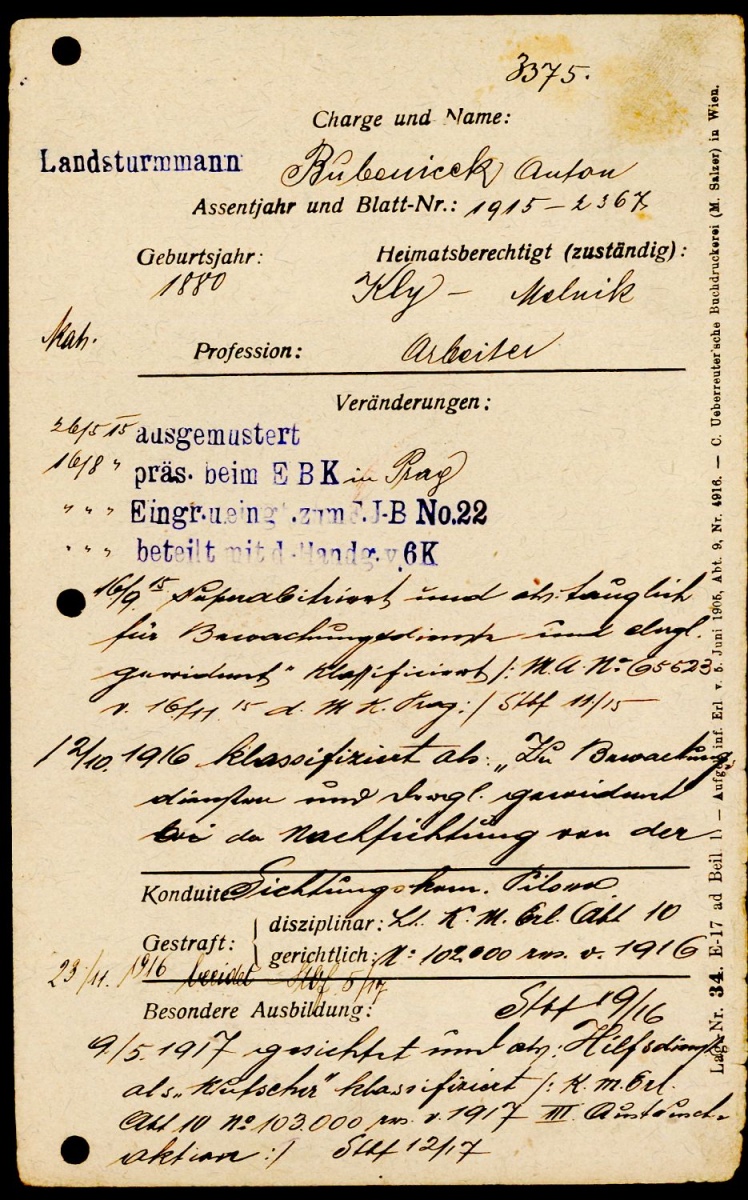 3375.
Charge und Name:
Landsturmmann Bubenicek Anton
Assentjahr und Blatt-Nr.: 1915 – 2367
Geburtsjahr: Heimatsberechtigt (zuständig):
1880 Kly – Melnik
Kath. Profession: Arbeiter
Veränderungen:
26/5 15 ausgemustert
16/8 " präs. beim E B K in Prag
" " " Eingr. u. eing zum J-B No. 22
" " " beteilt mit d. Handg. v. 6K
16/9 15 Superarbitriert und als "tauglich
für Bewachungsdienste und drgl.
gewidmet" klassificiert /: M.A. No 65623
v. 16/11 15 d. M. K. Prag :/ Stbf 11/15
12/10. 1916 klassifiziert als: „Zu Bewachungs
diensten und drgl. gewidmet
bei der Nachsichtung von der
Konduite: Sichtungskom. Pilsen
Gestraft: disziplinar: Lt. K. M. Erl. Abt 10
gerichtlich: No 102000 res. v. 1916
23/11. 1916 beeidet Stbf 5/17
Besondere Ausbildung: Stbf 19/16
9/5. 1917 gesichtet und als: Hilfsdienst
als „Kutscher" klassifiziert /: K. M. Erl.
Abt 10 No 103.000 res. v. 1917 III. Austausch-
aktion :/ Stbf 12/17
Lager-Nr. 34. E-17 ad Beil. 1) — Aufgel. inf. Erl. v. 5. Juni 1905, Abt. 9, Nr. 4916. — C. Ueberreuter'sche Buchdruckerei (M. Salzer) in Wien.